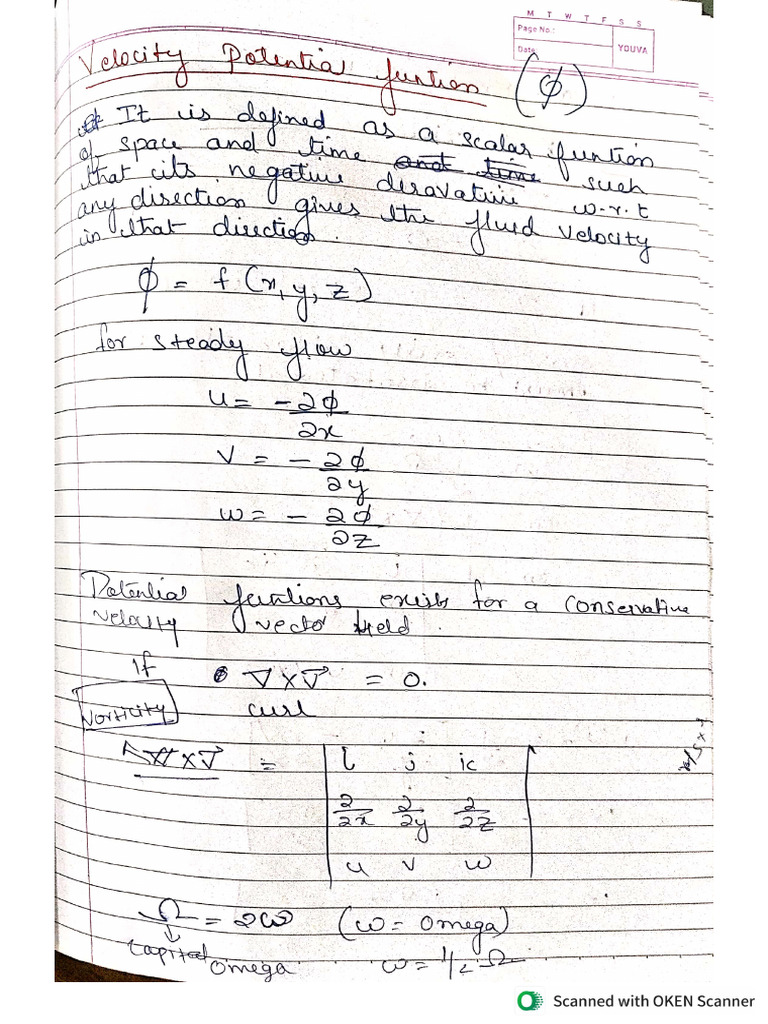 M T W T F S S
Page No.:
Date:
YOUVA
Velocity Potential funtion (ϕ)
It is defined as a scalar funtion
of space and time ~~and time~~ such
that its negative deravative w.r.t
any direction gives the fluid velocity
in that direction.
ϕ = f (x, y, z)
for steady flow
u = -∂ϕ/∂x
v = -∂ϕ/∂y
w = -∂ϕ/∂z
Potential funtions exists for a conservative
velocity vector field.
if ∇×V⃗ = 0.
Vorticity curl
∇×V⃗ = | i j k
∂/∂x ∂/∂y ∂/∂z
u v w |
Ω = 2ω (ω = omega)
↓
capital omega ω = 1/2 Ω
Scanned with OKEN Scanner